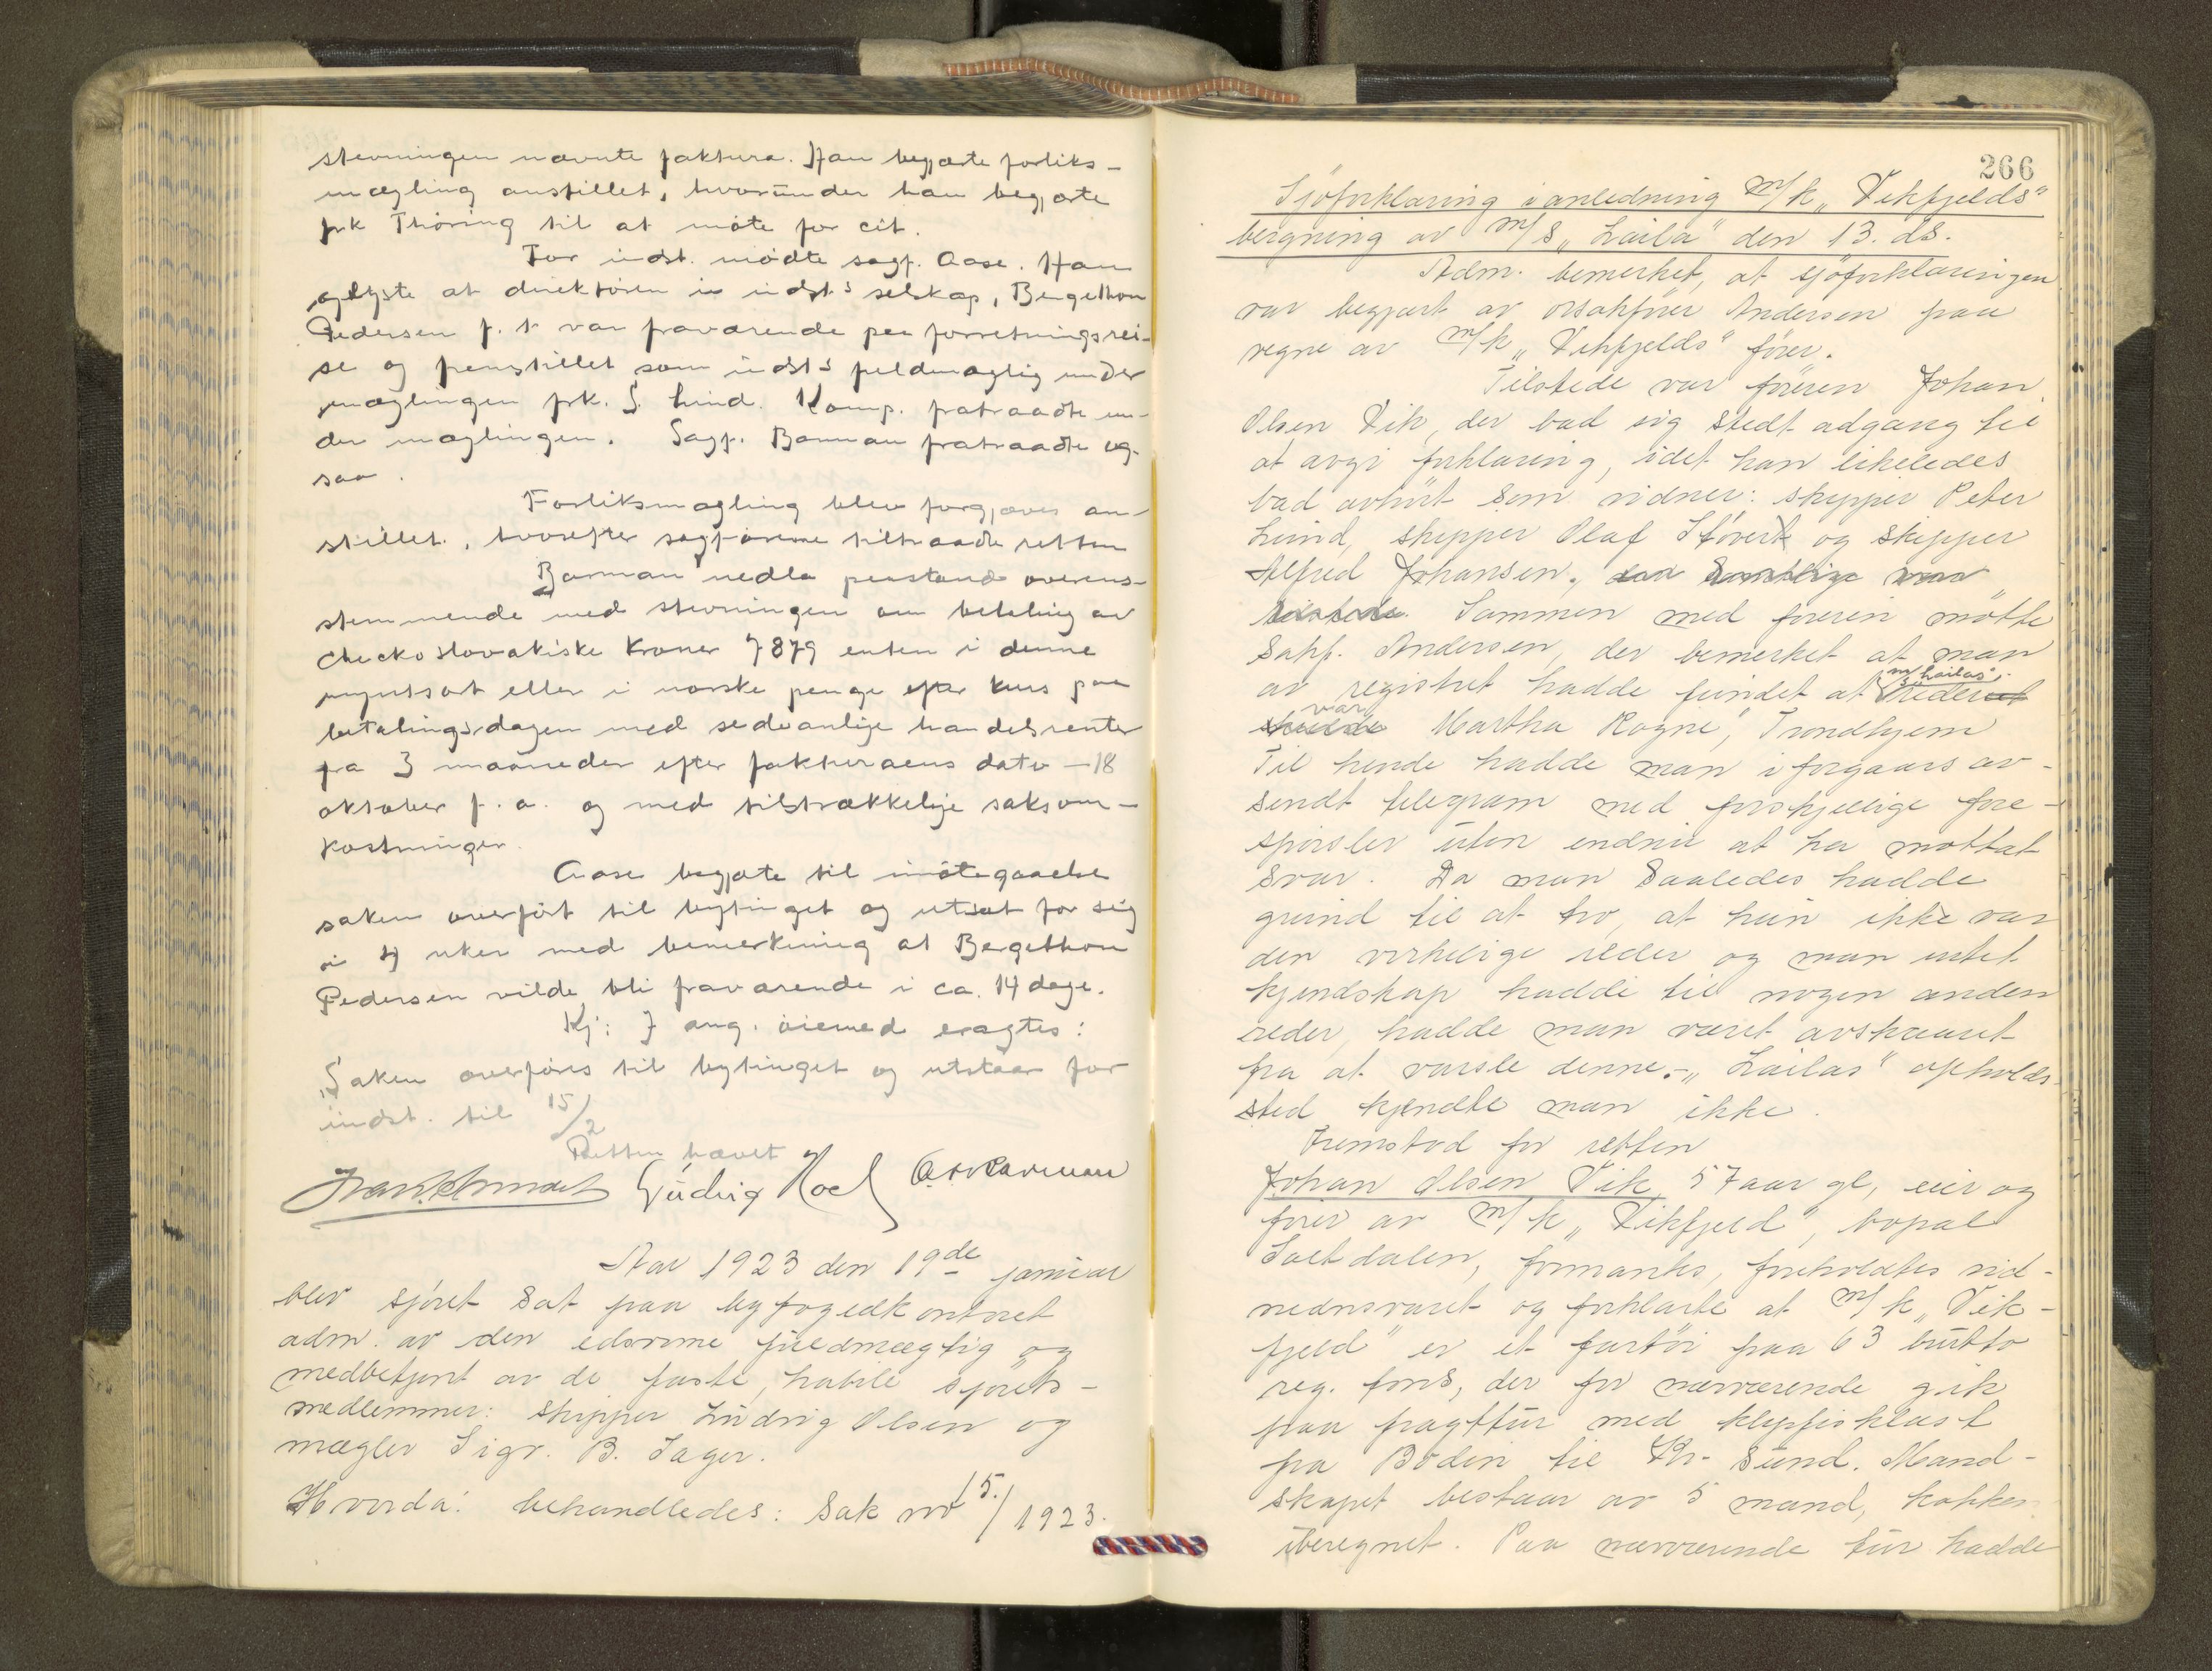 stevningen nævnte faktura. Han begjærte forliks-
mægling anstillet, hvorunder han begjærte
frk Thöring til at möte for cit.
For indst. mödte sagf. Aase. Han
oplyste at direktören i indst's selskap, Bergethon
Pedersen f. t var fraværende paa forretningsrei-
se og fremstillet som indst's fuldmægtig under
mæglingen frk. S. Lind. Komp. fratraadte un-
der mæglingen. Sagf. Borman fratraadte og-
saa.
Forliksmægling blev forgjæves an-
stillet, hvorefter sagförerne tiltraadte retten
Borman nedla paastand overens-
stemmende med stevningen om betaling av
checkoslovakiske Kroner 7879 enten i denne
myntsort eller i norske penge efter kurs paa
betalingsdagen med sedvanlige handelsrenter
fra 3 maaneder efter fakturaens dato - 18
oktober f. a. og med tilstrækkelige saksom-
kostninger.
Aase begjærte til imötegaaelse
saken overfört til bytinget og utsat for sig
i 4 uker med bemerkning at Bergethon
Pedersen vilde bli fraværende i ca. 14 dage.
Kj: I ang. öiemed eragtes:
Saken overföres til bytinget og utstaar for
indst. til 15/2
Retten hævet
Gudrig Hoel
Aar 1923 den 19de januar
blev sjöret sat paa byfogedkontoret
adm. av den edsvorne fuldmægtig og
medbetjent av de faste, habile sjörets-
medlemmer: skipper Ludvig Olsen og
mægler Sigv. B. Jager.
Hvorda: behandledes: Sak no 15./1923.
266
Sjöforklaring i anledning m/k "Vikfjelds"
bergning av m/s "Laila" den 13. ds.
Adm. bemerket, at sjöforklaringen
var begjært av orsakförer Andersen paa
vegne av m/k "Vikfjelds" förer.
Tilstede var föreren Johan
Olsen Vik, der bad sig stedt adgang til
at avgi forklaring, idet han likeledes
bad avhört som vidner: skipper Peter
Lund, skipper Olaf og skipper
Alfred Johansen, samtlige var
tilstede. Sammen med föreren mötte
Sakf. Andersen, der bemerket at man
av registret hadde fundet at m/s "Lailas" rederet
skulde var Martha Rogne, Trondhjem
Til hende hadde man i forgaars av-
sendt telegram med forskjellige fore-
spörsler uten endnu at ha mottat
svar. Da man saaledes hadde
grund til at tro, at hun ikke var
den virkelige reder og man intet
kjendskap hadde til nogen anden
reder, hadde man været avskaaret
fra at varsle denne. - "Lailas" opholds-
sted kjendte man ikke.
Fremstod for retten
Johan Olsen Vik, 57 aar gl, eier og
förer av m/k "Vikfjeld", bopæl
Saltdalen, formantes, foreholdtes vid-
nednsvaret og forklarte at m/k "Vik-
fjeld" er et fartöi paa 63 brutto
reg. tons, der for nærværende gik
paa fragttur med klipfisklast
fra Bodin til Kr-Sund. Mand-
skapet bestaar av 5 mand, kokken
iberegnet. Paa nærværende tur hadde